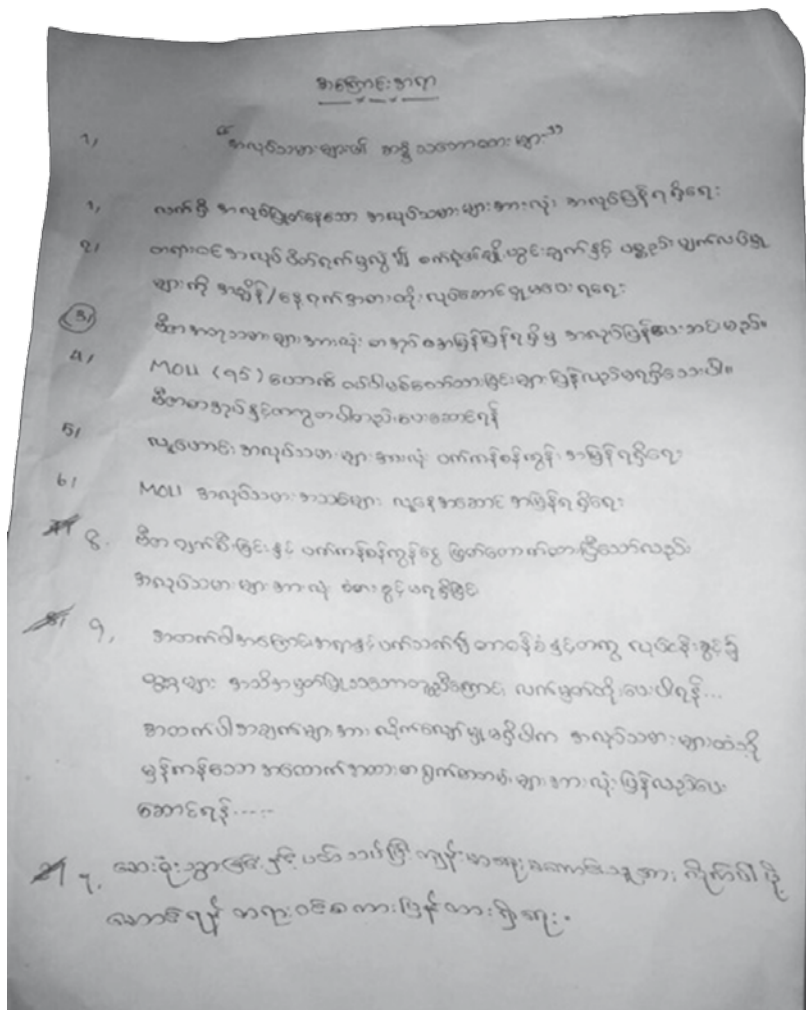 အကြောင်းအရာ
1, "အလုပ်သမားများ၏ သဘောထားများ"
၁, လက်ရှိ အလုပ်ပြုတ်နေသော အလုပ်သမားများအားလုံး အလုပ်ပြန်ရရှိရေး
၂, တရားဝင်အလုပ်ပိတ်ရက်မှလွဲ၍ စက်ရုံ ချို့ယွင်းချက်နှင့် ပစ္စည်းပျက်လပ်မှု
များကို အချိန်/နေ့ရက်အစားထိုးလုပ်ဆောင်မှုမပေးရရေး
3, ဗီဇာ အလုပ်သမားများအားလုံး စာအုပ် အမြန်ပြန်ရရှိမှ အလုပ်ပြန်ပေးဆင်းမည်။
4, MOU (၅၅) ယောက် ပြန်လည်မရရှိသေးပါ။
ဗီဇာစာအုပ်နှင့်တကွတပါတည်းပေးဆောင်ရန်
5, လူဟောင်း အလုပ်သမားများအားလုံး ဝက်ကန်စန်ကွန်း အမြန်ရရှိရေး
6, MOU အလုပ်သမားအသစ်များ လူနေအဆောင် အမြန်ရရှိရေး
8. ဗီဇာ ဝက်ကန်စန်ကွန်ငွေ ဖြတ်တောက်ထားပြီးသော်လည်း
အလုပ်သမားများအားလုံး ခံစားခွင့်မရရှိခြင်း
9, အထက်ပါအကြောင်းအရာနှင့်ပတ်သက်၍ တာဝန်ခံနှင့်တကွ လုပ်ငန်းခွင်၌
များ အသိအမှတ်ပြုသဘောတူညီကြောင်း လက်မှတ်ထိုးပေးပါရန်...
အထက်ပါအချက်များအား လိုက်လျော်မှုမရှိပါက အလုပ်သမားများထံသို့
မှန်ကန်သော အထောက်အထားစာရွက်စာတမ်းများအားလုံး ပြန်လည်ပေး
ဆောင်ရန်.....
7. ဆေးရုံသွားခြင်းနှင့်ပတ်သက်ပြီး ကျန်းမာရေး မကောင်းသူအား လိုက်ပါပို့
ဆောင်ရန် တရားဝင်စကားပြန်ထားရှိရေး.